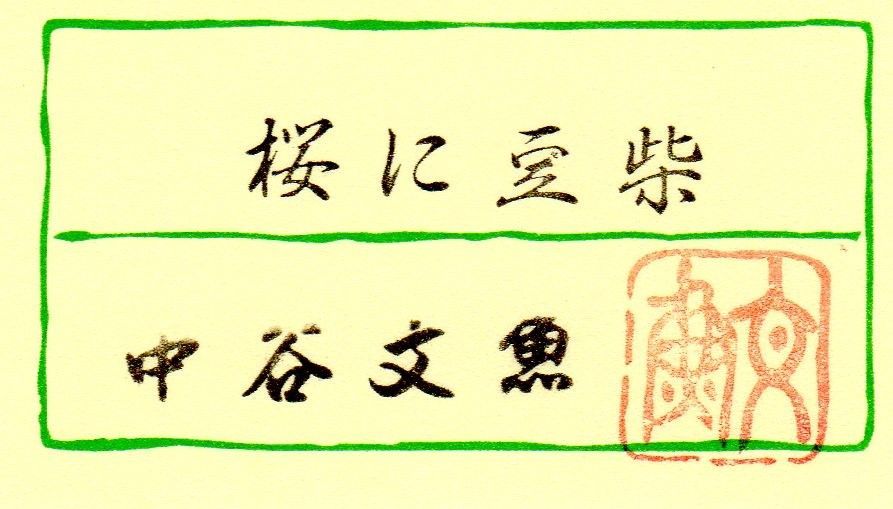 桜に豆柴
中谷文魚